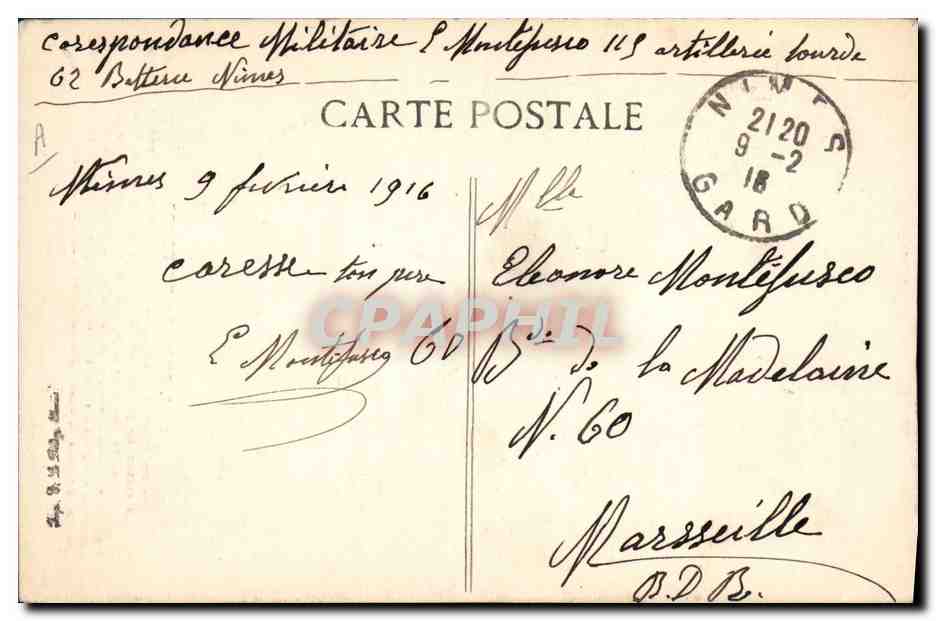 Corespondance Militaire E Montefusco 115 artillerie lourde
62 Batterie Nimes
CARTE POSTALE
NIMES
2120
9-2
16
GARD
A
Nimes 9 fevrière 1916
Mlle
caresse ton pere
Eleonore Montéfusco
E Montefusco 60
Bd de la Madelaine
N. 60
Marsseille
B.D.R.
CPAPHIL